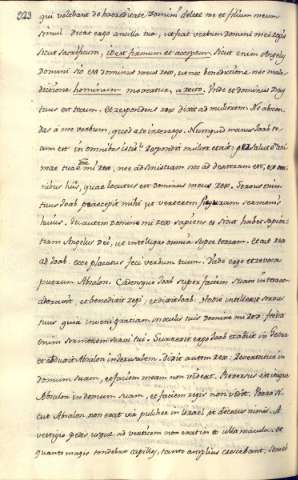 223 qui volebant de haereditate Domini delere me et filium meum
simul. Dicat ergo ancilla tua, ut fiat verbum Domini mei regis
sicut sacrificium, idest firmum et acceptum. Sicut enim Angelus
Domini sic est dominus meus rex, ut nec benedictione, nec male
dictione hominum moveatur, a vero. Unde et Dominus Deus
tuus est tecum. Et respondens rex dixit ad mulierem. Ne abscon
das a me verbum, quod a te interrogo. Numquid manus Joab te
cum est in omnibus istis? Respondit mulier et ait. Per salutem ani
mae tuae domine mi rex, nec ad sinistram nec ad dextram est, ex om
nibus his, quae locutus est dominus meus rex. Servus enim
tuus Joab praecepit mihi ut verterem figuram sermonis
huius. Tu autem Domine mi rex sapiens es sicut habet sapien
tiam Angelus Dei, ut intelligas omnia super terram. Et ait rex
ad Joab. Ecce placatus feci verbum tuum. Vade ergo et revoca
puerum Absalon. Cadensque Joab super faciem suam in terram
adoravit, et benedixit regi, et dixit Joab. Hodie intellexit servus
tuus quia inveni gratiam in oculis tuis domine mi rex. fecisti
enim sermonem servi tui. Surrexit ergo Joab et abiit in Gessur
et adduxit Absalon in Jerusalem. Dixit autem rex. Revertatur in
domum suam, et faciem meam non videat. Reversus est itaque
Absalon in domum suam, et faciem regis non vidit. Porro si
cut Absalon non erat vir pulcher in Israel et decorus nimis. A
vestigio pedis usque ad verticem non erat in eo ulla macula. et
quanto magis tondebat capillos, tanto amplius crescebant. Semel